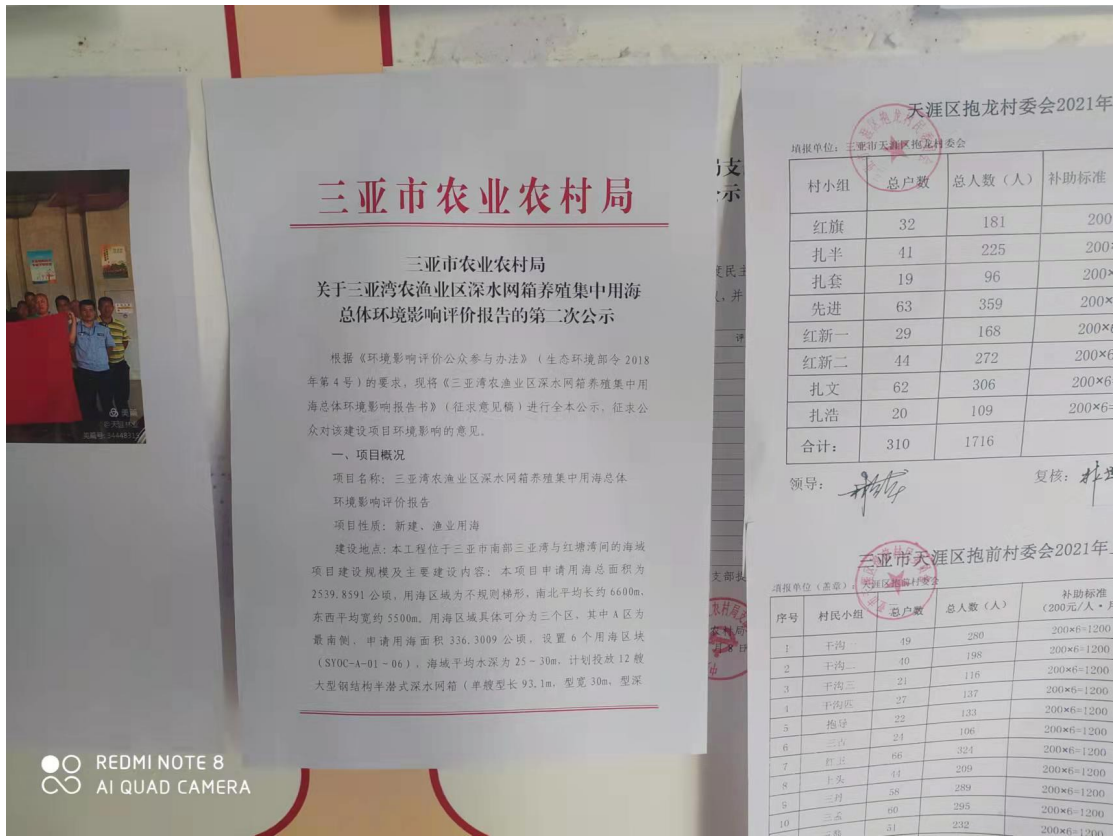 三亚市农业农村局
三亚市农业农村局
关于三亚湾农渔业区深水网箱养殖集中用海
总体环境影响评价报告的第二次公示
根据《环境影响评价公众参与办法》（生态环境部令2018
年第4号）的要求，现将《三亚湾农渔业区深水网箱养殖集中用
海总体环境影响报告书》（征求意见稿）进行全本公示，征求公
众对该建设项目环境影响的意见。
一、项目概况
项目名称：三亚湾农渔业区深水网箱养殖集中用海总体
环境影响评价报告
项目性质：新建、渔业用海
建设地点：本工程位于三亚市南部三亚湾与红塘湾间的海域
项目建设规模及主要建设内容：本项目申请用海总面积为
2539.8591公顷，用海区域为不规则梯形，南北平均长约6600m，
东西平均宽约5500m。用海区域具体可分为三个区，其中A区为
最南侧，申请用海面积336.3009公顷，设置6个用海区块
（SYOC-A-01~06），海域平均水深为25-30m，计划投放12艘
大型钢结构半潜式深水网箱（单艘型长93.1m，型宽30m，型深
天涯区抱龙村委会2021年
填报单位：三亚市天涯区抱龙村委会
村小组 总户数 总人数（人） 补助标准
红旗 32 181 200
扎半 41 225 200
扎套 19 96 200×
先进 63 359 200×
红新一 29 168 200×6
红新二 44 272 200×6
扎文 62 306 200×6
扎浩 20 109 200×6=
合计： 310 1716
领导：
复核：
三亚市天涯区抱前村委会2021年
填报单位（盖章）：天涯区抱前村委会
序号 村民小组 总户数 总人数（人） 补助标准
（200元/人·月
1 干沟一 49 280 200×6=1200
2 干沟二 40 198 200×6=1200
3 干沟三 21 116 200×6=1200
4 干沟四 27 137 200×6=1200
5 抱导 22 133 200×6=1200
6 24 106 200×6=1200
7 红卫 66 324 200×6=1200
8 44 209 200×6=1200
9 三村 58 289 200×6=1200
10 60 295 200×6=1200
51 232 200×6=1200
REDMI NOTE 8
AI QUAD CAMERA